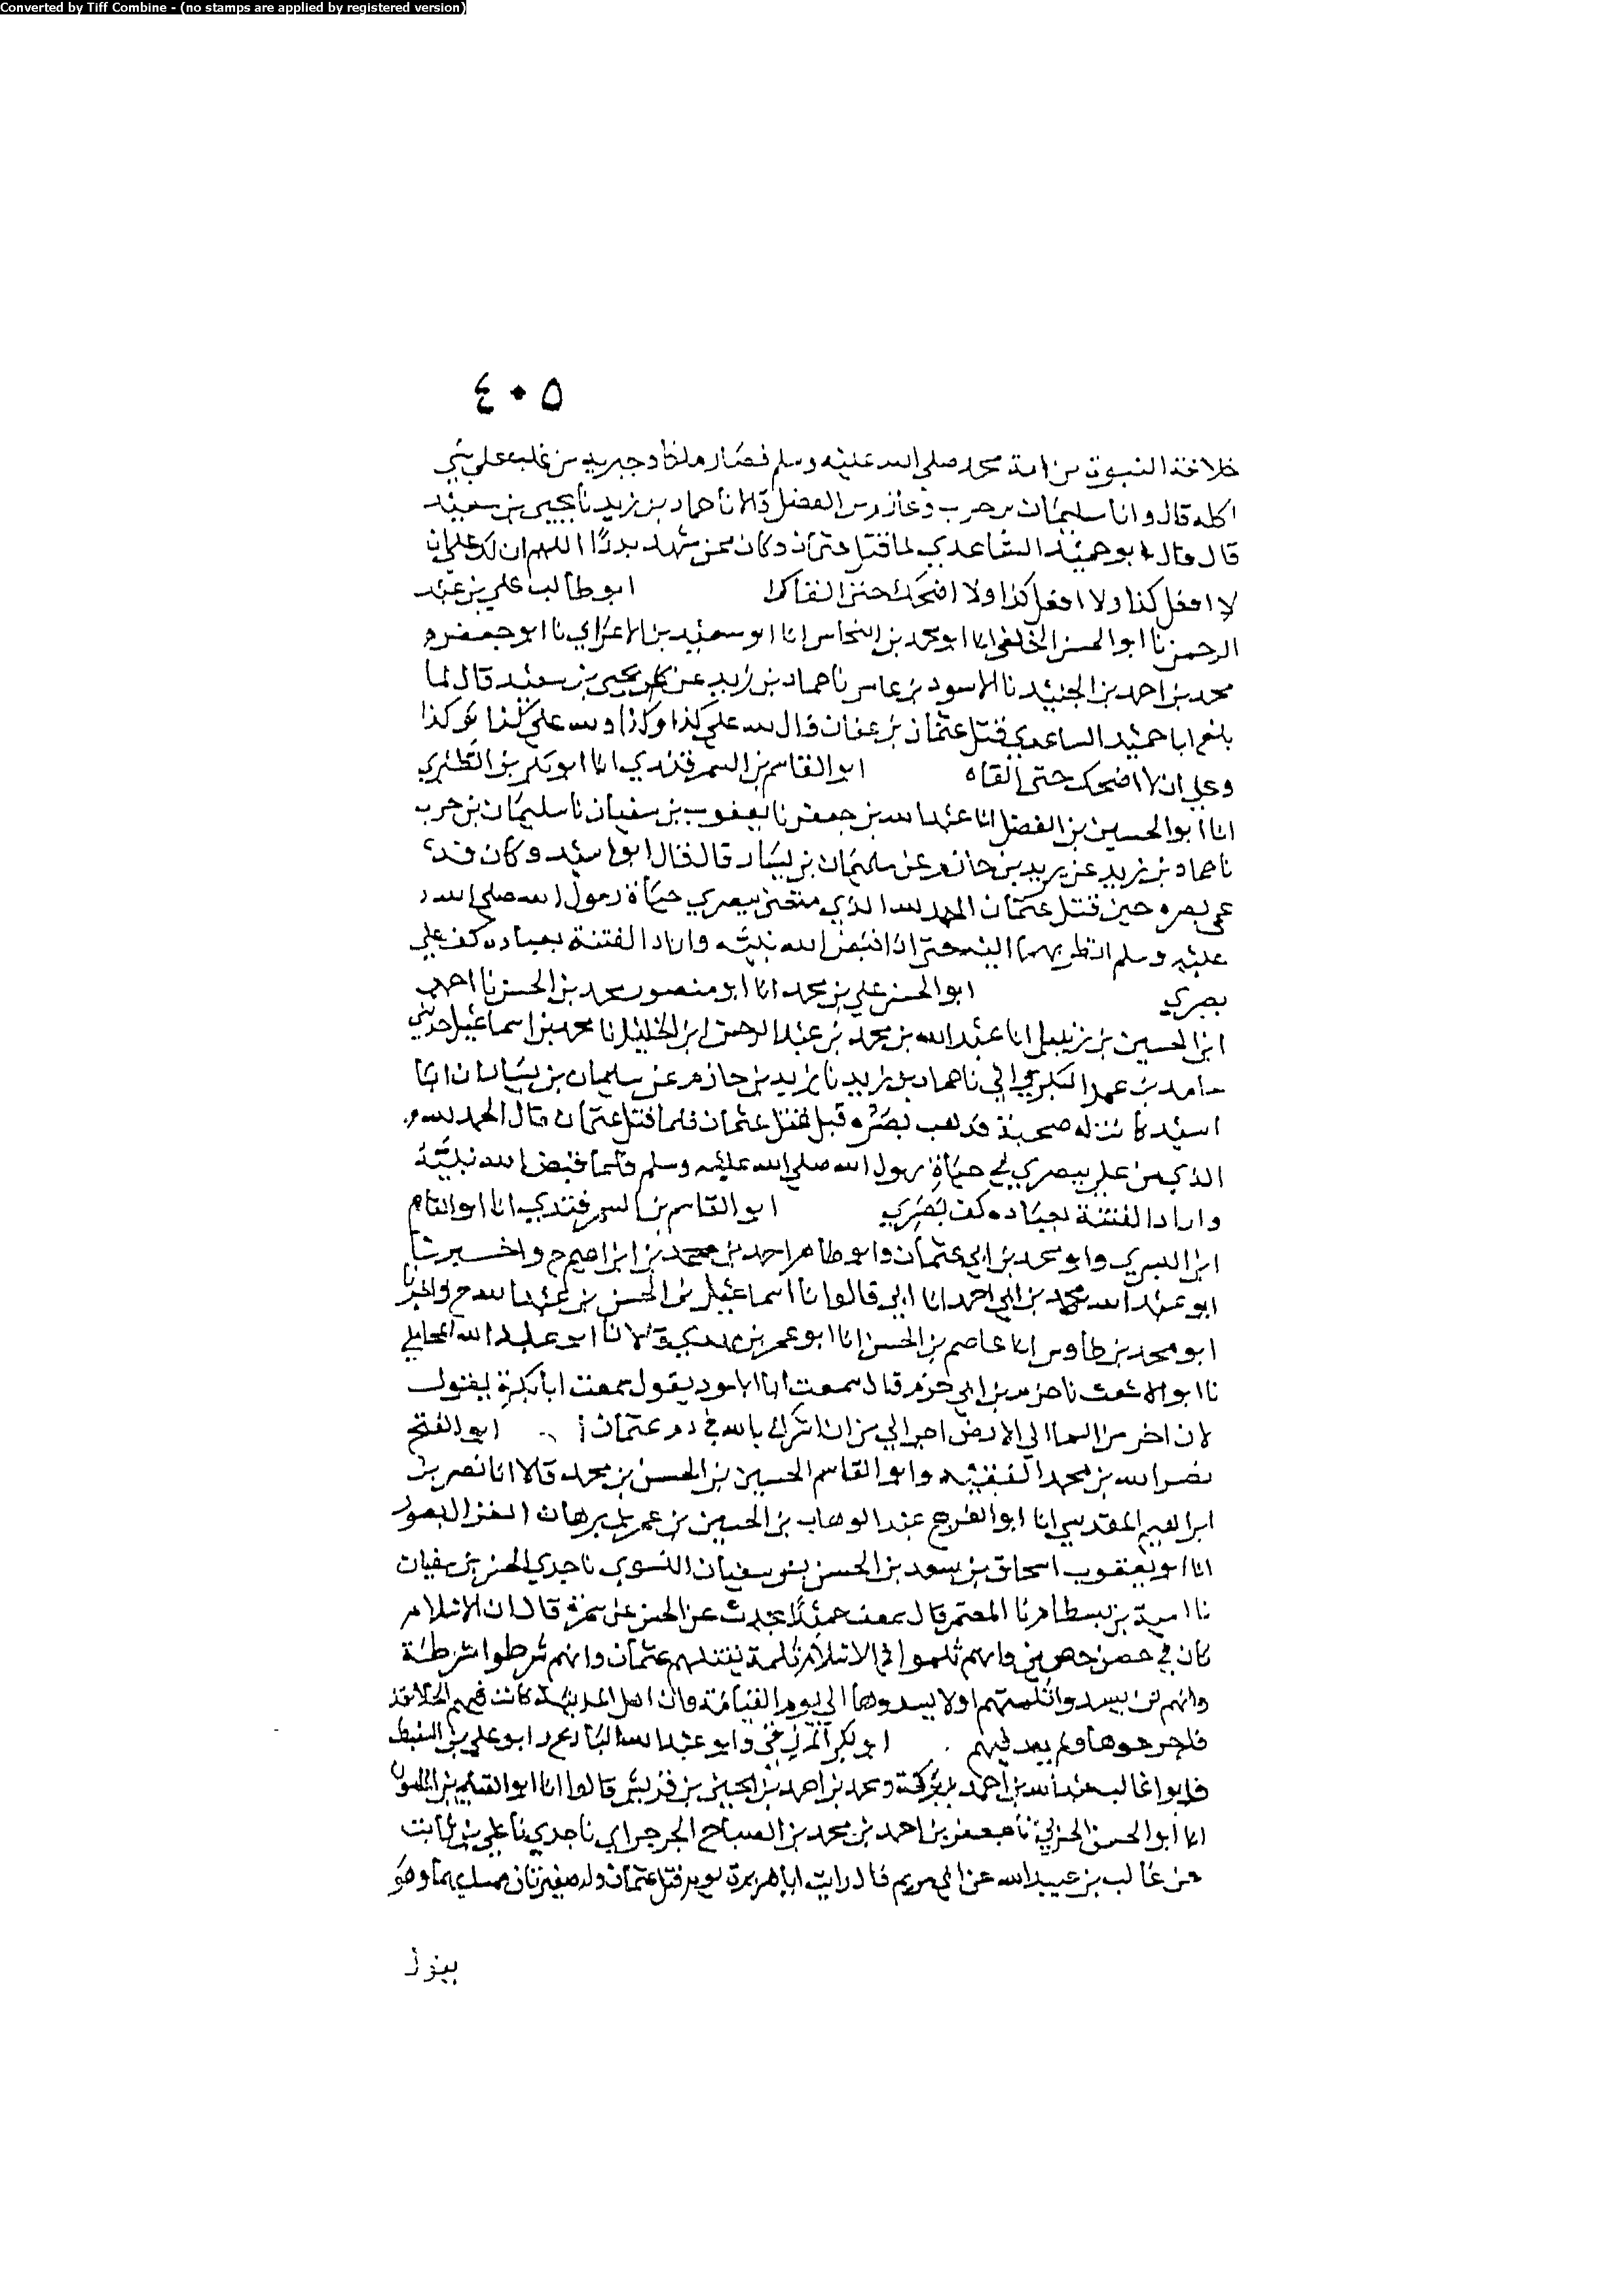 Converted by Tiff Combine - (no stamps are applied by registered version)
٤٠٥
خلافة النبوة من امة محمد صلى الله عليه وسلم فصار ملكا وجبرية من غلب على شي
اكله قال وانا سليمان بن حرب وعازم بن الفضل قالا نا حماد بن زيد نا يحيى بن سعيد
قال قال ابو حميد الساعدي لما قتل عثمان وكان ممن شهد بدرًا اللهم ان لك علي ان
لا افعل كذا ولا افعل كذا ولا اضحك حتى القاك ابو طالب علي بن عبد
الرحمن نا ابو الحسن الخلعي انا ابو محمد بن النحاس انا ابو سعيد بن الاعرابي نا ابو جعفر
محمد بن احمد بن الجنيد نا الاسود بن عامر نا حماد بن زيد عن يحيى بن سعيد قال لما
بلغ ابا حميد الساعدي قتل عثمان بن عفان قال لله علي كذا وكذا ولله علي كذا وكذا
وعلي ان لا اضحك حتى القاه ابو القاسم بن السمرقندي انا ابو بكر بن الطبري
انا ابو الحسين بن الفضل انا عبد الله بن جعفر نا يعقوب بن سفيان نا سليمان بن حرب
نا حماد بن زيد عن يزيد بن حازم عن سليمان بن يسار قال قال ابو اسيد وكان قد
عمي بصره حين قتل عثمان الحمد لله الذي متعني ببصري حياة رسول الله صلى الله
عليه وسلم انظر بهما اليه حتى اذا قبض الله نبيه واراد الفتنة بعباده كف علي
بصري ابو الحسن علي بن محمد انا ابو منصور محمد بن الحسن نا احمد
ابن الحسين بن زنبيل انا عبد الله بن محمد بن عبد الرحمن ابن الخليل نا محمد بن اسماعيل حدثني
حامد بن عمر البكراوي نا حماد بن زيد نا يزيد بن حازم عن سليمان بن يسار ان ابا
اسيد كانت له صحبة فذهب بصره قبل قتل عثمان فلما قتل عثمان قال الحمد لله
الذي من علي ببصري في حياة رسول الله صلى الله عليه وسلم فلما قبض الله نبيه
واراد الفتنة بعباده كف بصري ابو القاسم بن السمرقندي انا ابو القاسم
ابن البسري وابو محمد بن ابي عثمان وابو طاهر احمد بن محمد بن ابراهيم ح واخبرنا
ابو عبد الله محمد بن ابي احمد انا ابي قالوا نا اسماعيل بن الحسن بن عبد الله ح واخبرنا
ابو محمد بن طاوس انا عاصم بن الحسن انا ابو عمر بن مهدي قالا نا ابو عبد الله المحاملي
نا ابو الاشعث نا حزم بن ابي حزم قال سمعت ابا الاسود يقول سمعت ابا بكرة يقول
لان اخر من السما الى الارض احب الي من ان اشرك بالله في دم عثمان ابو الفتح
نصر الله بن محمد الفقيه وابو القاسم الحسين بن الحسن بن محمد قالا انا نصر بن
ابراهيم المقدسي انا ابو الفرج عبد الوهاب بن الحسين بن عمر بن برهان الغزال بصور
انا ابو يعقوب اسحاق بن سعد بن الحسن بن سفيان النسوي نا جدي الحسن بن سفيان
نا امية بن بسطام نا المعتمر قال سمعت حميدًا يحدث عن الحسن عن سمرة قال ان الاسلام
كان في حصن حصين وانهم ثلموا في الاسلام ثلمة بقتلهم عثمان وانهم شرطوا شرطة
وانهم لن يسدوا ثلمتهم اولا يسدوها الى يوم القيامة وان اهل المدينة كانت فيهم الخلافة
فاخرجوها ولم يعد فيهم ابو بكر المزرفي وابو عبد الله البارع وابو علي بن السبط
وابو غالب عبد الله بن احمد بن بركة ومحمد بن احمد بن الحسين بن قريش قالوا انا ابو الغنايم بن المامون
انا ابو الحسن الحربي نا جعفر بن احمد بن محمد بن الصباح الجرجراي نا جدي نا علي بن ثابت
عن غالب بن عبيد الله عن ابي مريم قال رايت ابا هريرة يوم قتل عثمان وله ضفيرتان ممسك بهما وهو
يقول